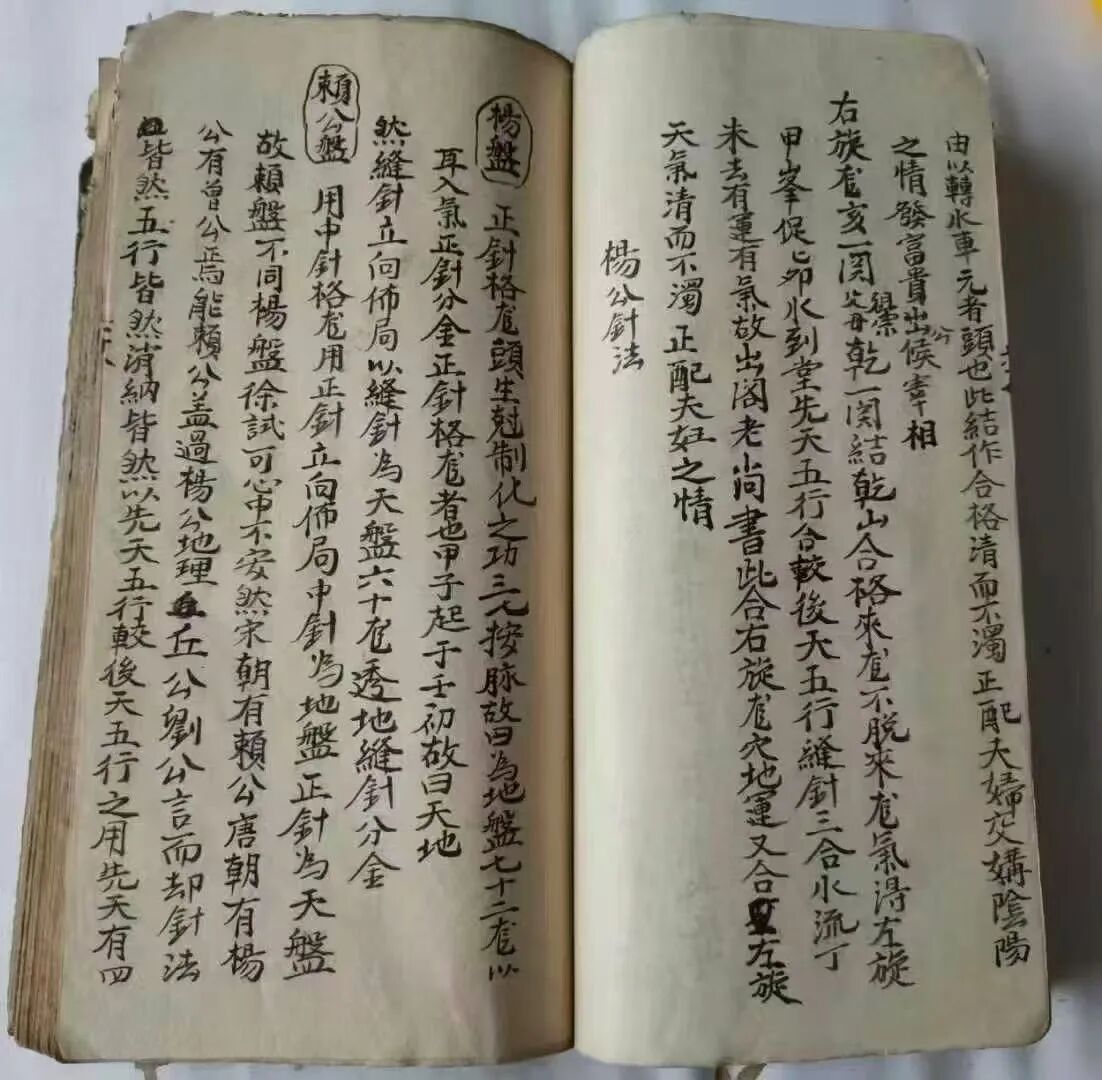 由以轉水車元者頭也此結作合格清而不濁正配夫婦交媾陰陽
之情發富貴出候公宰相
右旋龙亥一関父母缀乾一関結乾山合格來龙不脱來龙氣得左旋
甲峯促乙卯水到堂先天五行合較後天五行縫針三合水流丁
未去有運有氣故出閣老尚書此合右旋龙穴地運又合左旋
天氣清而不濁正配夫妇之情
楊公針法
楊盤 正針格龙頭生尅制化之功三七按脉故曰為地盤七十二龙以
耳入氣正針分金正針格龙者也甲子起于壬初故曰天地
然縫針立向佈局以縫針為天盤六十龙透地縫針分金
賴公盤 用中針格龙用正針立向佈局中針為地盤正針為天盤
故賴盤不同楊盤徐試可心中不安然宋朝有賴公唐朝有楊
公有曾公正焉能賴公盖過楊公地理丘公劉公言而却針法
皆然五行皆然消納皆然以先天五行較後天五行之用先天有四